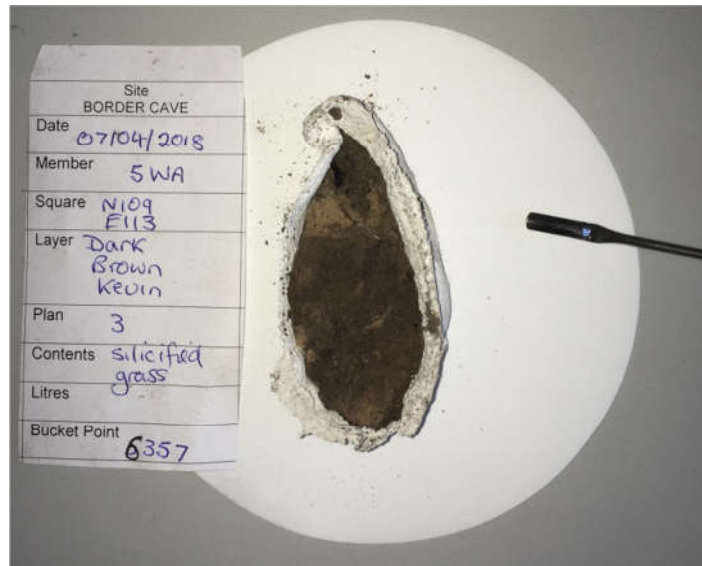 Site
BORDER CAVE
Date 07/04/2018
Member 5 WA
Square N109
E113
Layer Dark
Brown
Kevin
Plan 3
Contents silicified
grass
Litres
Bucket Point 6357